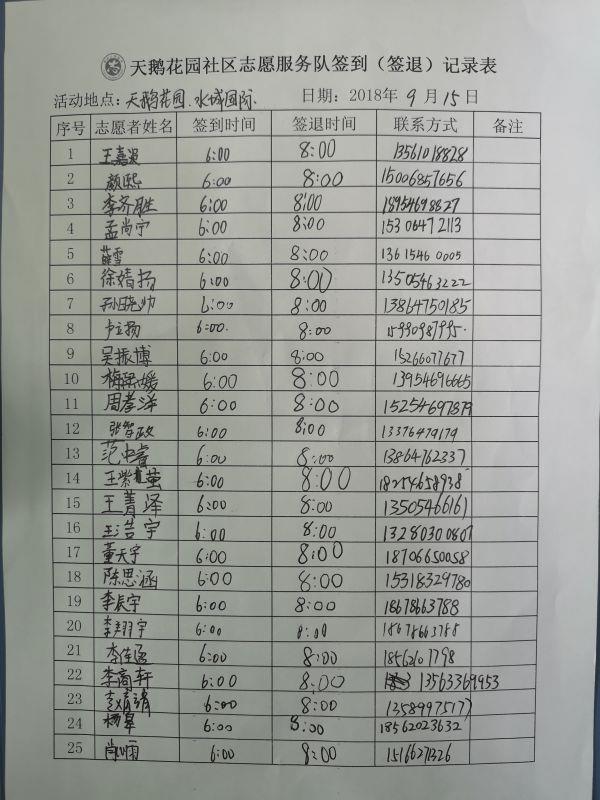 天鹅花园社区志愿服务队签到（签退）记录表
活动地点：天鹅花园.水城国际. 日期：2018年 9 月 15 日
序号 志愿者姓名 签到时间 签退时间 联系方式 备注
1 王嘉 6:00 8:00 13561018828
2 颜熙 6:00 8:00 15006857656
3 李齐胜 6:00 8:00 18954698827
4 孟尚宇 6:00 8:00 15306472113
5 薛雪 6:00 8:00 13615460005
6 徐婧扬 6:00 8:00 13505463222
7 孙晓帅 6:00 8:00 13864750185
8 卢立扬 6:00. 8:00 15990987995.
9 吴振博 6:00 8:00 15266077677
10 梅 媛 6:00 8:00 13954696665
11 周孝泽 6:00 8:00 15254697879
12 张智政 6:00 8:00 13376479179
13 范中睿 6:00 8:00 13864762337
14 王紫 6:00 8:00 18254658938
15 王菁泽 6:00 8:00 13505466161
16 王浩宇 6:00 8:00 13280300807
17 董天宇 6:00 8:00 18706650058
18 陈思涵 6:00 8:00 15318329780
19 李辰宇 6:00 8:00 18678663788
20 李翔宇 6:00 8:00 18678663788
21 李佳 6:00 8:00 18562101798
22 李高轩 6:00 8:00 13563369953
23 6:00 8:00 13589975177
24 杨 6:00 8:00 18562023632
25 肖 雨 6:00 8:00 15166271326